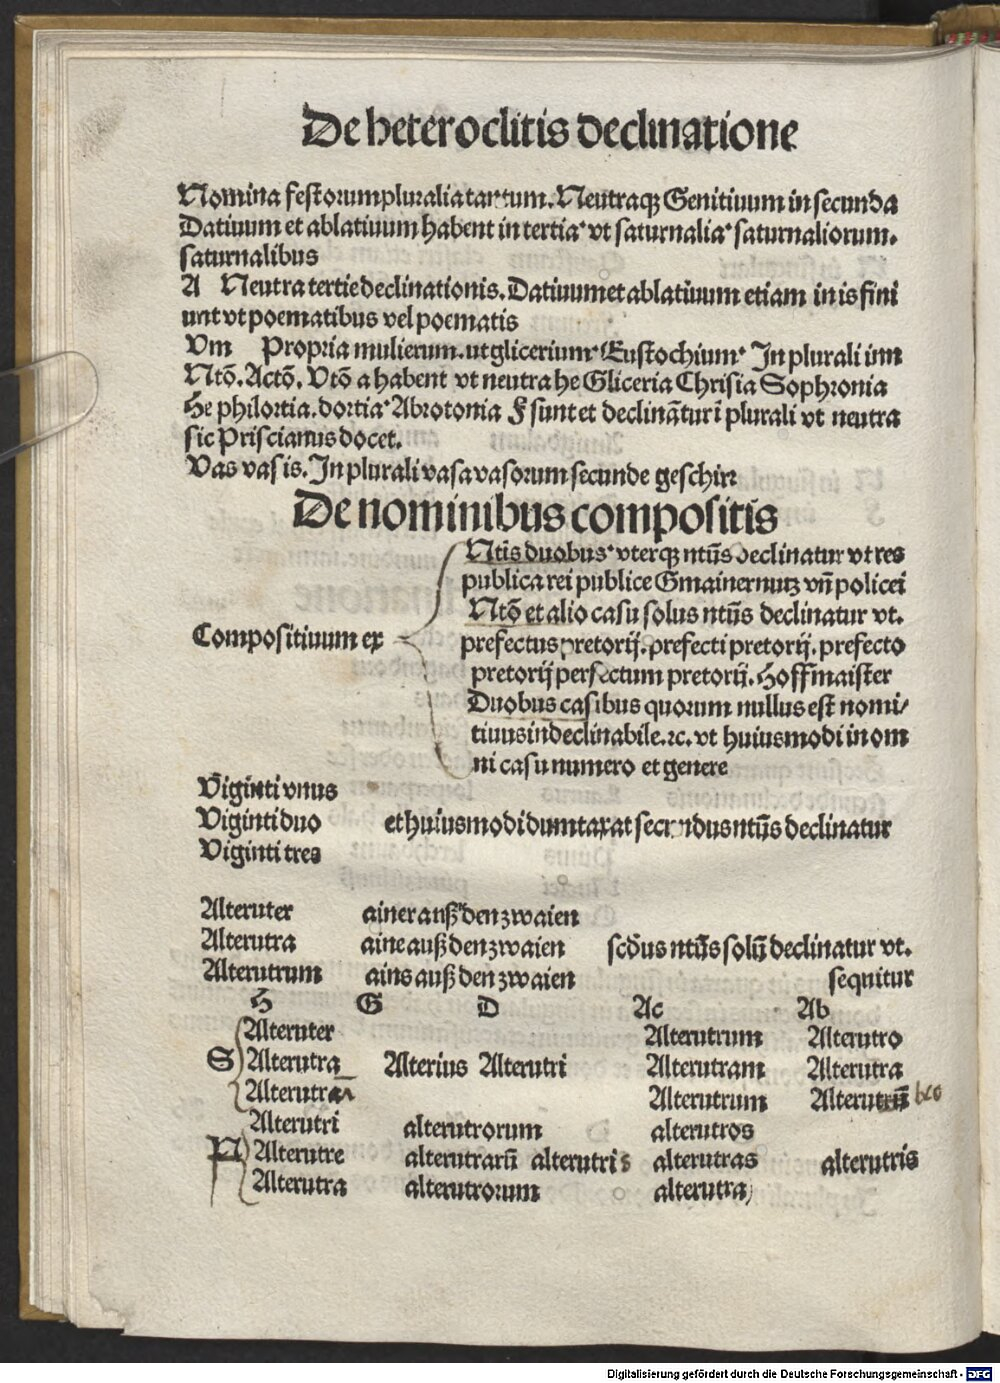 De heteroclitis declinatione
Nomina festorum pluralia tantum. Neutraqꝫ Genitiuum in secunda
Datiuum et ablatiuum habent in tertia· vt saturnalia· saturnaliorum.
saturnalibus
A Neutra tertie declinationis. Datiuum et ablatiuum etiam in is fini
unt vt poematibus vel poematis
Vm Propria mulierum. ut glicerium· Eustochium· In plurali inn
Ntō. Actō. Vtō a habent vt neutra he Gliceria Chrisia Sophronia
He philortia. dortia· Abrotonia sunt et declinātur ī plurali vt neutra
sic Priscianus docet.
Vas vasis. In plurali vasa vasorum secunde geschirr
De nominibus compositis
Ntis duobus· vterqꝫ ntūs declinatur vt res
publica rei publice Gmainernutz vñ policei
Ntō et alio casu solus ntūs declinatur vt.
Compositiuum ex
prefectus pretorij. prefecti pretorij. prefecto
pretorij perfectum pretorij. Hoffmaister
Duobus casibus quorum nullus est nomi/
tiuus indeclinabile. ꝛc. vt huiusmodi in om
ni casu numero et genere
Viginti vnus
Viginti duo et huiusmodi dumtaxat secundus ntūs declinatur
Viginti tres
Alteruter ainer auß den zwaien
Alterutra aine auß den zwaien scđus ntūs solū declinatur vt.
Alterutrum ains auß den zwaien sequitur
N G D Ac Ab
Alteruter Alterutrum Alterutro
S Alterutra Alterius Alterutri Alterutram Alterutra
Alterutra Alterutrum Alterutrū
Alterutri alterutrorum alterutros
P Alterutre alterutrarū alterutris alterutras alterutris
Alterutra alterutrorum alterutra
Digitalisierung gefördert durch die Deutsche Forschungsgemeinschaft - DFG